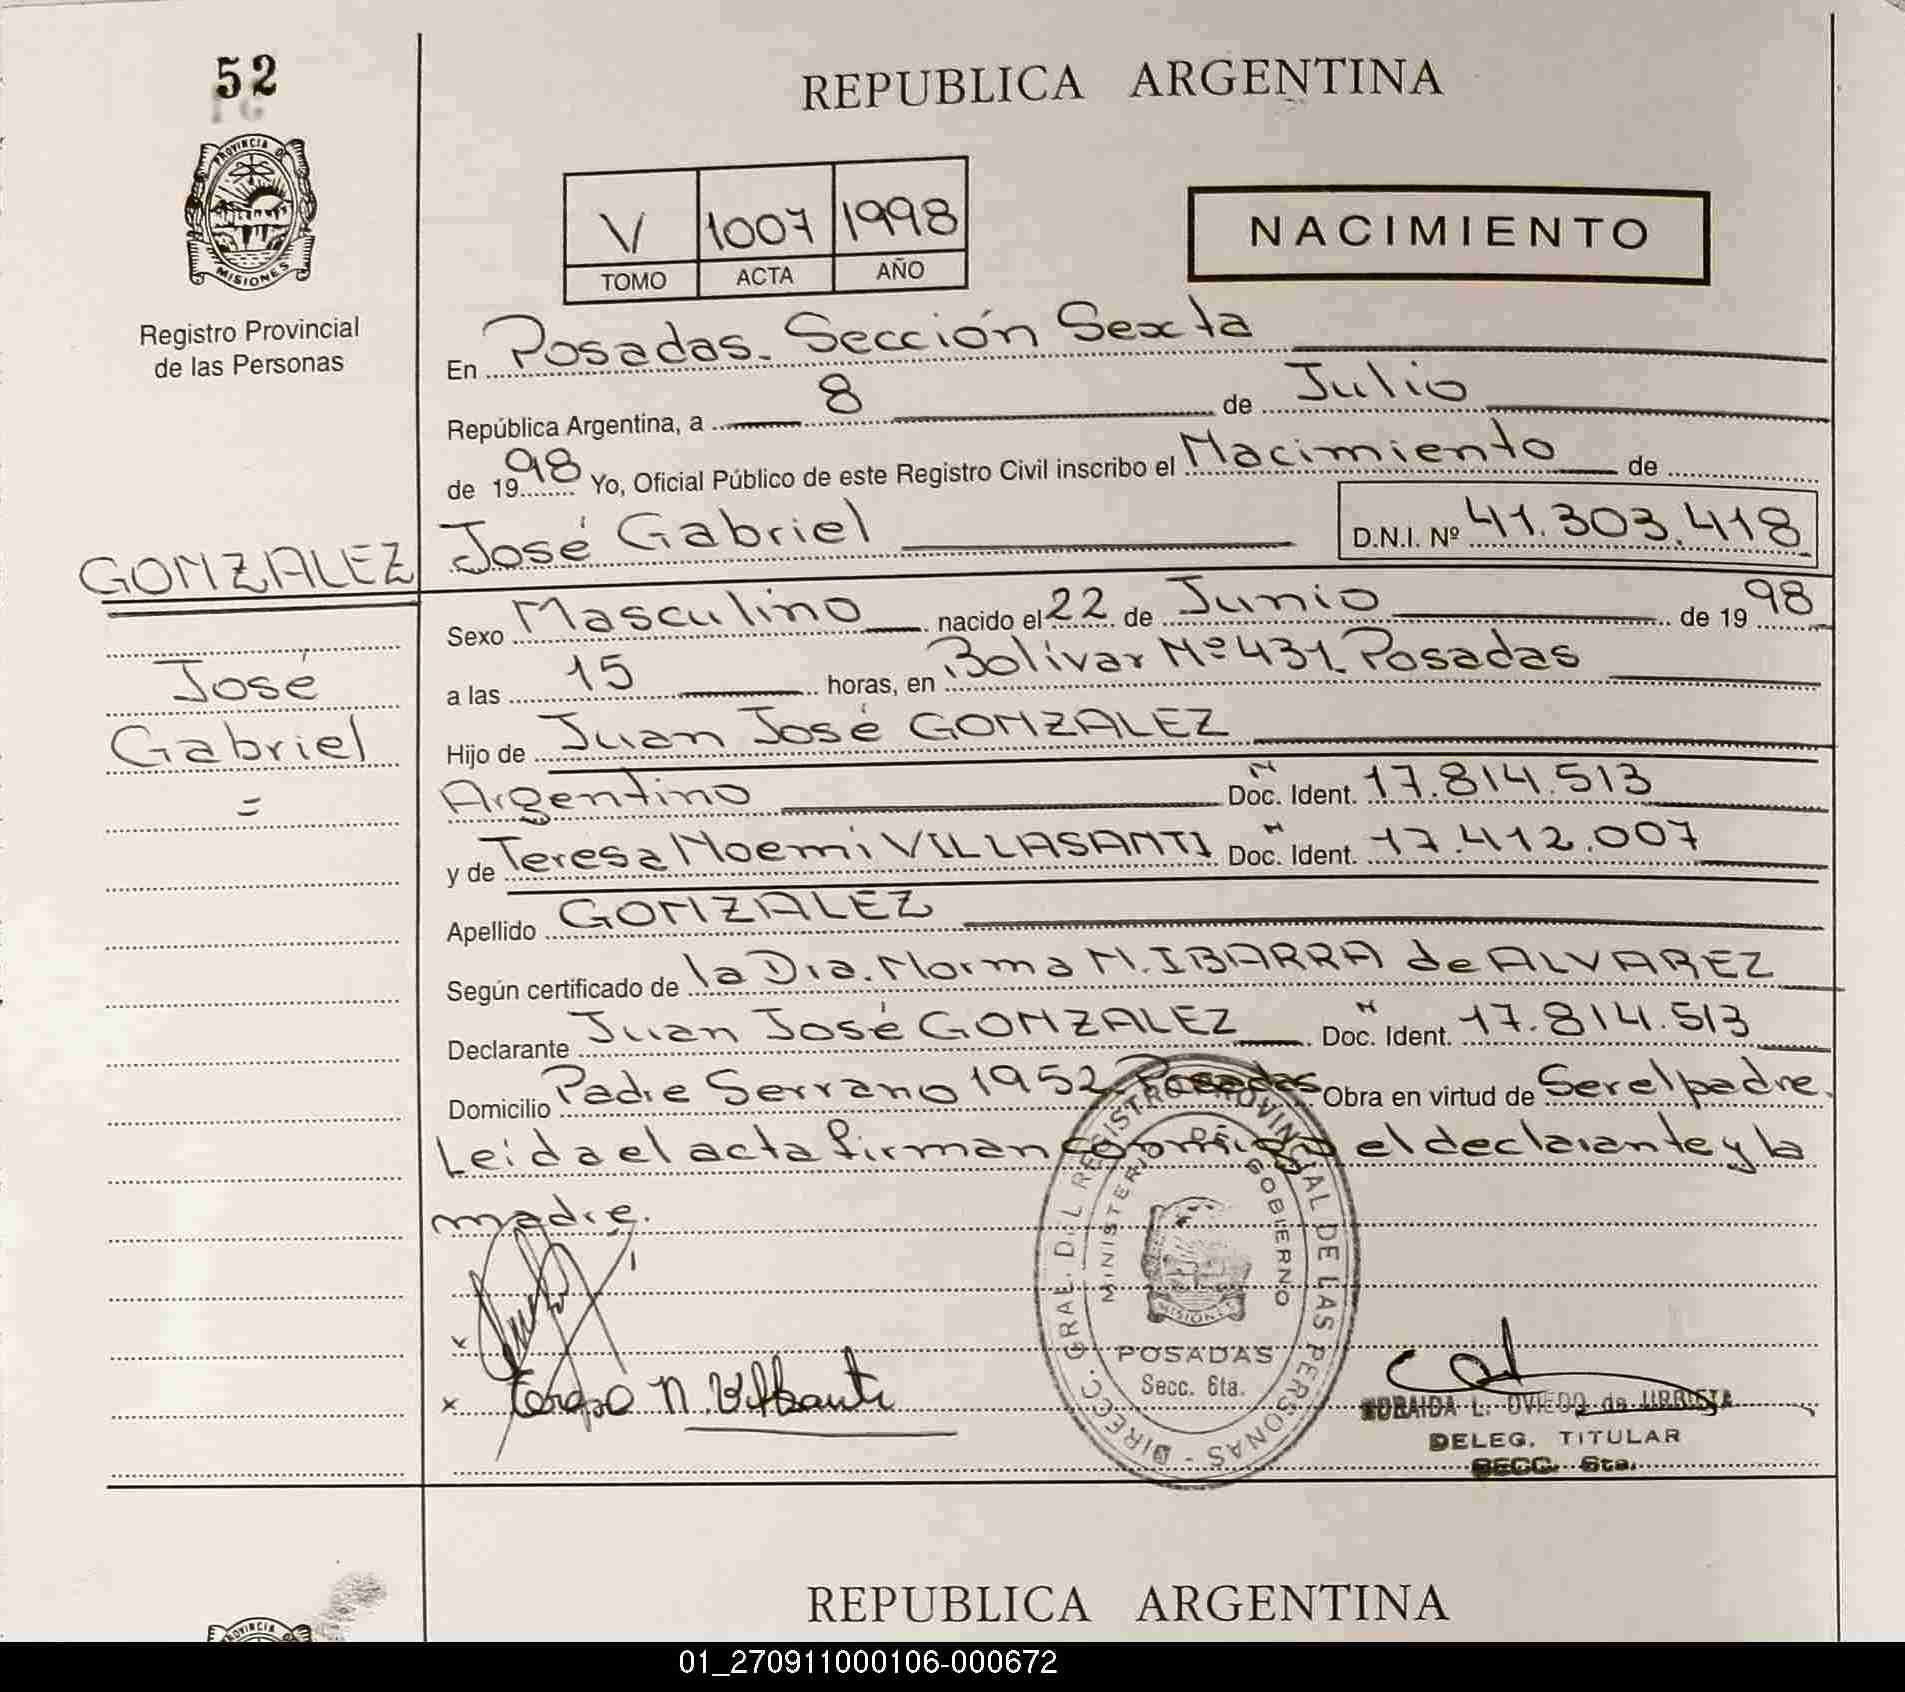 52
REPUBLICA ARGENTINA
PROVINCIA DE
MISIONES
Registro Provincial
de las Personas
V 1007 1998
TOMO ACTA AÑO
NACIMIENTO
En Posadas. Sección Sexta
República Argentina, a 8 de Julio
de 1998 Yo, Oficial Público de este Registro Civil inscribo el Nacimiento de
GONZALEZ José Gabriel D.N.I. Nº 41.303.418
Sexo Masculino nacido el 22 de Junio de 1998
José
Gabriel
=
a las 15 horas, en Bolívar Nº 431. Posadas
Hijo de Juan José GONZALEZ
Argentino Doc. Ident. 17.814.513
y de Teresa Noemi VILLASANTI Doc. Ident. 17.412.007
Apellido GONZALEZ
Según certificado de la Dra. Norma N. IBARRA de ALVAREZ
Declarante Juan José GONZALEZ Doc. Ident. 17.814.513
Domicilio Padre Serrano 1952 Posadas Obra en virtud de Ser el padre.
Leída el acta firman conmigo el declarante y la
madre.
DIRECC. GRAL. DEL REGISTRO PROVINCIAL DE LAS PERSONAS
MINISTERIO DE GOBIERNO
MISIONES
POSADAS
Secc. 6ta.
x
x Teresa N. Villasanti
ZORAIDA L. OVIEDO de URBIETA
DELEG. TITULAR
SECC. 6ta.
REPUBLICA ARGENTINA
PROVINCIA
01_270911000106-000672